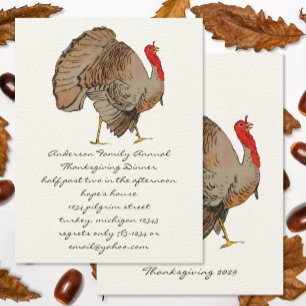 Anderson Family Annual
Thanksgiving Dinner
half past two in the afternoon
hope's house
1234 pilgrim street
turkey, michigan 12345
regrets only 713-1234 or
email@yahoo.com
Thanksgiving 2029